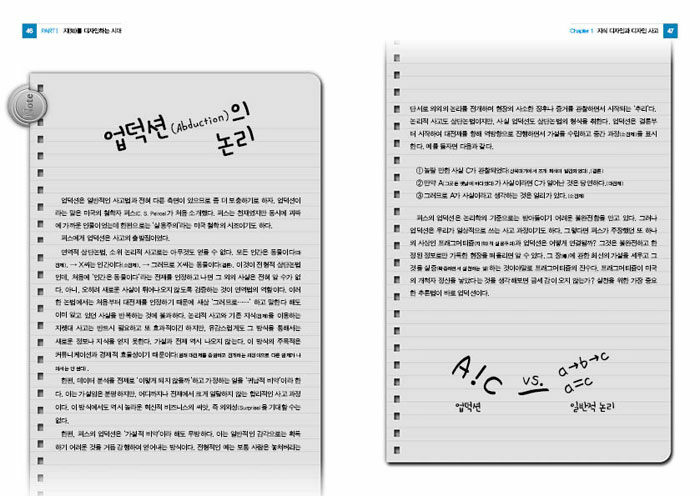 46 PART 1 지(知)를 디자인하는 시대
Note
업덕션(Abduction)의
논리
업덕션은 일반적인 사고법과 전혀 다른 측면이 있으므로 좀 더 보충하기로 하자. 업덕션이
라는 말은 미국의 철학자 퍼스(C. S. Peirce)가 처음 소개했다. 퍼스는 천재였지만 동시에 괴짜
에 가까운 인물이었는데 한편으로는 '실용주의'라는 미국 철학의 시조이기도 하다.
퍼스에게 업덕션은 사고의 출발점이었다.
연역적 삼단논법, 소위 논리적 사고로는 아무것도 얻을 수 없다. 모든 인간은 동물이다(대
전제). → X씨는 인간이다(소전제). → 그러므로 X씨는 동물이다(결론). 이것이 전형적 삼단논법
인데, 처음에 '인간은 동물이다'라는 전제를 인정하고 나면 그 외의 사실은 전혀 알 수가 없
다. 아니, 오히려 새로운 사실이 튀어나오지 않도록 검증하는 것이 연역법의 역할이다. 이러
한 논법에서는 처음부터 대전제를 인정하기 때문에 새삼 '그러므로……' 하고 말한다 해도
이미 알고 있던 사실을 반복하는 것에 불과하다. 논리적 사고와 기존 지식(전제)을 이용하는
지렛대 사고는 반드시 필요하고 또 효과적이긴 하지만, 유감스럽게도 그 방식을 통해서는
새로운 정보나 지식을 얻지 못한다. 가설과 전제 역시 나오지 않는다. 이 방식의 주목적은
커뮤니케이션과 경제적 효율성이기 때문이다
한편, 데이터 분석을 전제로 '이렇게 되지 않을까'하고 가정하는 일을 '귀납적 비약'이라 한
다. 이는 가설임은 분명하지만, 어디까지나 전제에서 크게 일탈하지 않는 합리적인 사고 과정
이다. 이 방식에서도 역시 놀라운 혁신적 비즈니스의 씨앗, 즉 의외성(Surprise)을 기대할 수는
없다.
한편, 퍼스의 업덕션은 '가설적 비약'이라 해도 무방하다. 이는 일반적인 감각으로는 획득
하기 어려운 것을 거듭 감행하여 얻어내는 방식이다. 전형적인 예는 보통 사람은 놓쳐버리는
Chapter 1 지식 디자인과 디자인 사고 47
단서로 의외의 논리를 전개하며 현장의 사소한 징후나 증거를 관찰하면서 시작되는 '추리'다.
논리적 사고도 삼단논법이지만, 사실 업덕션도 삼단논법의 형식을 취한다. 업덕션은 결론부
터 시작하여 대전제를 향해 역방향으로 진행하면서 가설을 수립하고 중간 과정(소전제)을 표시
한다. 예를 들자면 다음과 같다.
① 놀랄 만한 사실 C가 관찰되었다
② 만약 A(그곳은 옛날에 바다였다)가 사실이라면 C가 일어난 것은 당연하다.(대전제)
③ 그러므로 A가 사실이라고 생각하는 것은 일리가 있다.(소전제)
퍼스의 업덕션은 논리학의 기준으로는 받아들이기 어려운 불완전함을 안고 있다. 그러나
업덕션은 우리가 일상적으로 쓰는 사고 과정이기도 하다. 그렇다면 퍼스가 주장했던 또 하나
의 사상인 프래그머티즘과 업덕션은 어떻게 연결될까? 그것은 불완전하고 한
정된 정보로만 가득한 현장을 떠올리면 알 수 있다. 그 장(場)에 관한 최선의 가설을 세우고 그
것을 실증하는 것이야말로 프래그머티즘의 진수다. 프래그머티즘이 미국
의 개척자 정신을 낳았다는 것을 생각해보면 금세 감이 오지 않는가? 실천을 위한 가장 중요
한 추론법이 바로 업덕션이다.
A!C vs. a→b→c
a=c
업덕션 일반적 논리